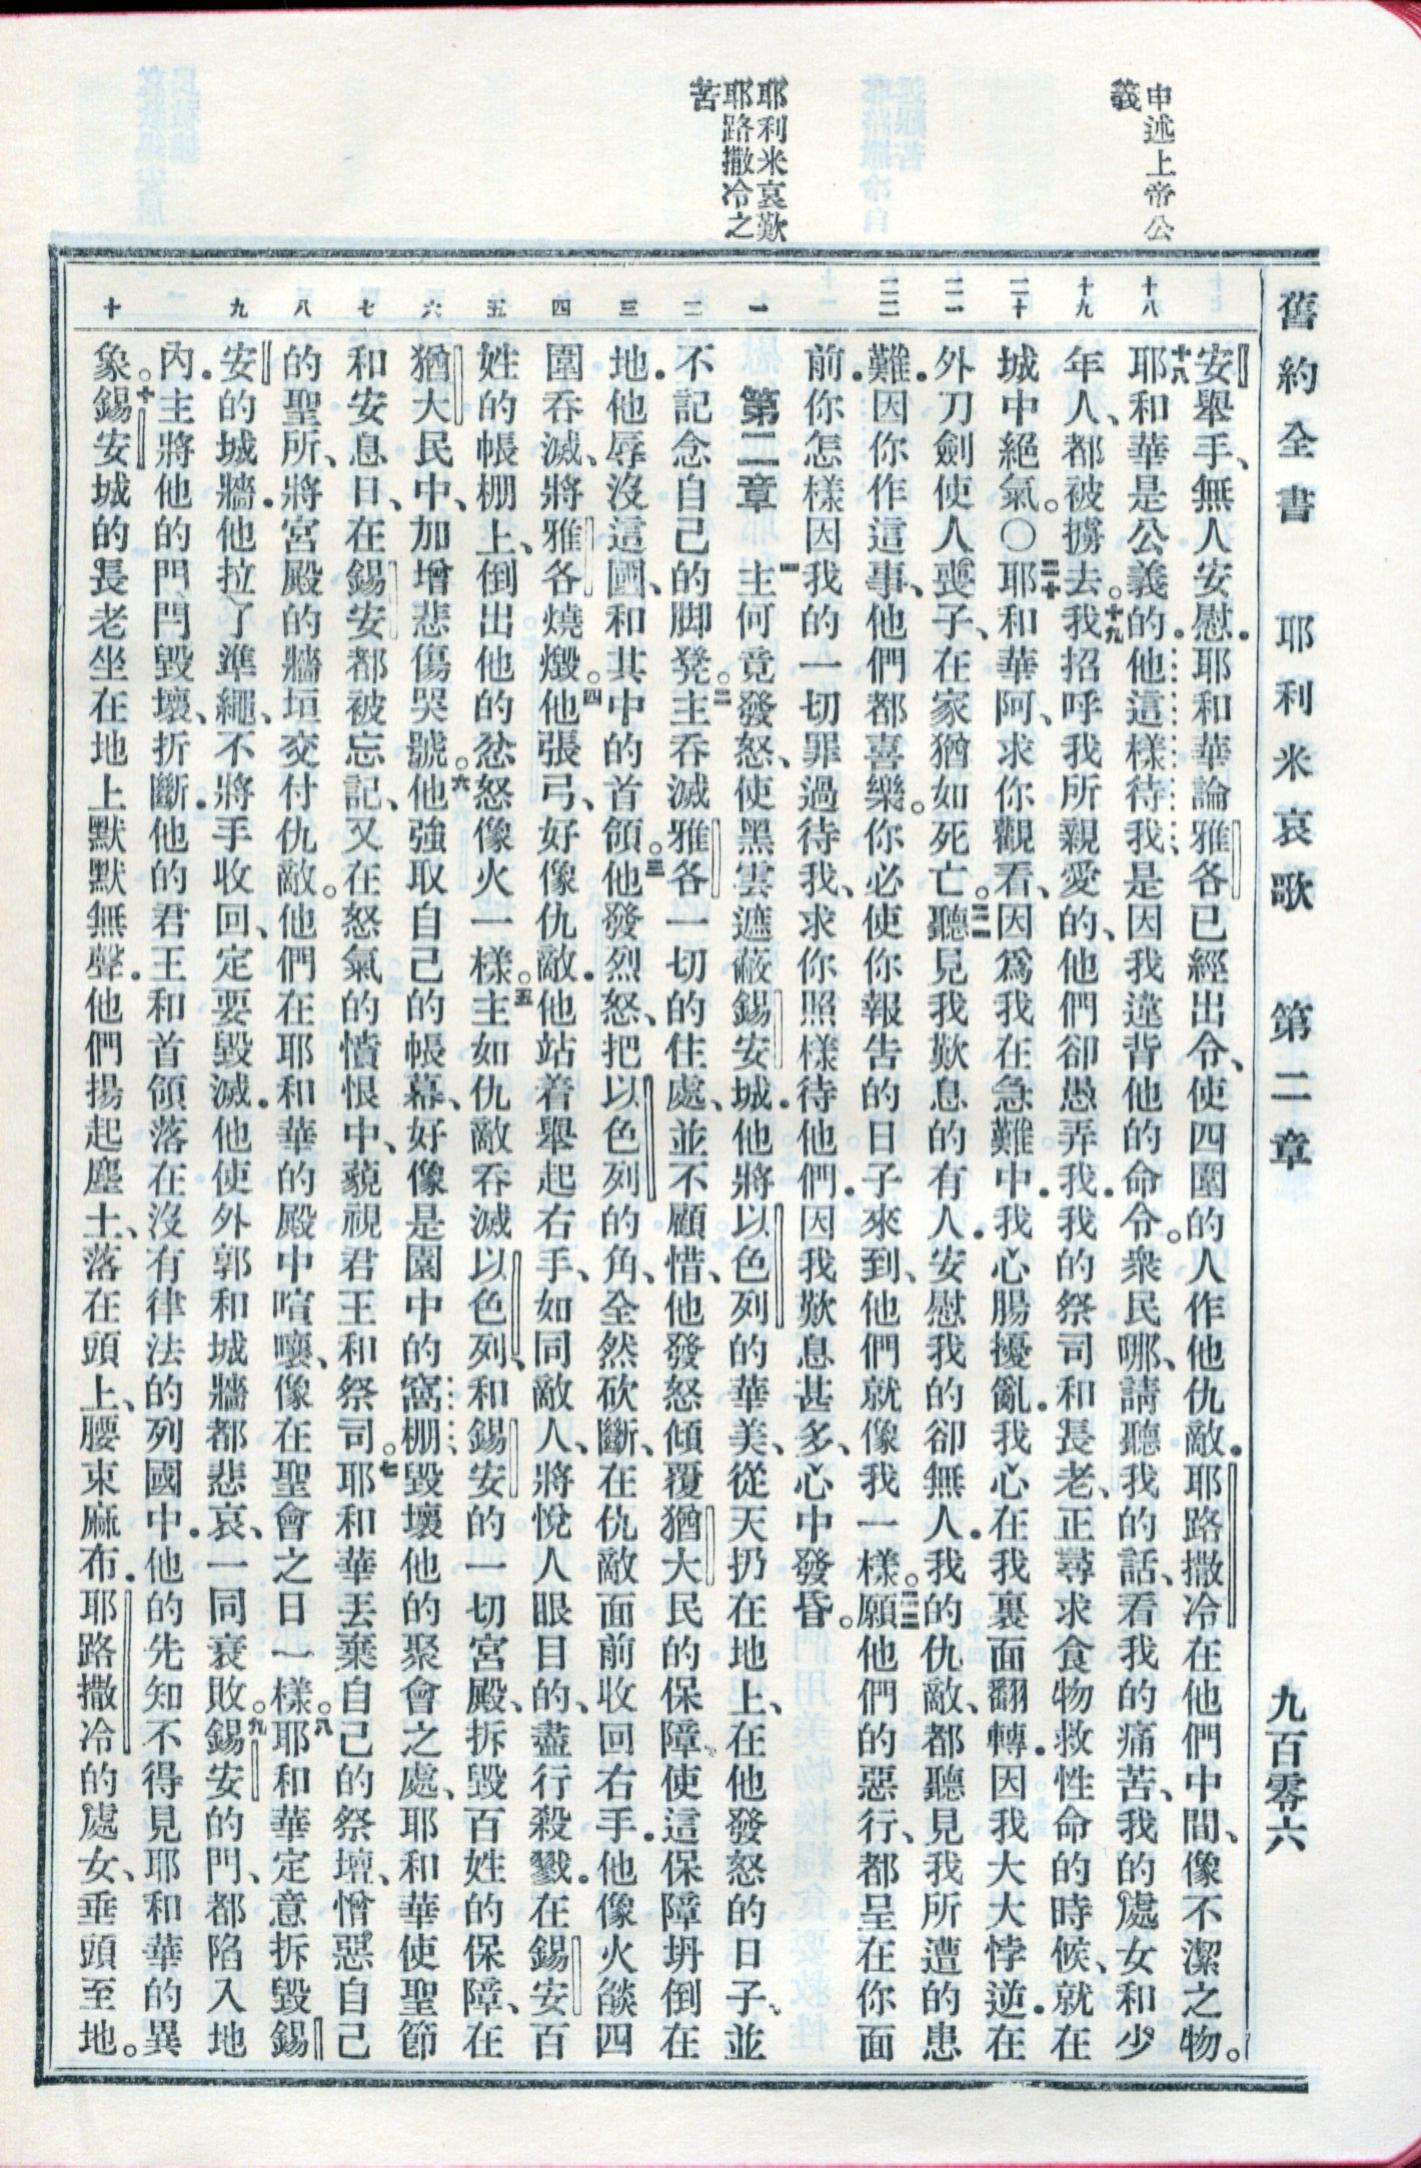 舊約全書 耶利米哀歌 第二章 九百零六
申述上帝公
義
耶利米哀歎
耶路撒冷之
苦
十八
十九
二十
二一
二二
一
二
三
四
五
六
七
八
九
十
安舉手、無人安慰．耶和華論雅各已經出令、使四圍的人作他仇敵．耶路撒冷在他們中間、像不潔之物。
十八耶和華是公義的．他這樣待我、是因我違背他的命令。衆民哪、請聽我的話、看我的痛苦、我的處女和少
年人、都被擄去。十九我招呼我所親愛的、他們卻愚弄我．我的祭司和長老、正尋求食物救性命的時候、就在
城中絕氣。〇二十耶和華阿、求你觀看、因爲我在急難中．我心腸擾亂．我心在我裏面翻轉．因我大大悖逆．在
外刀劍使人喪子、在家猶如死亡。二一聽見我歎息的有人．安慰我的卻無人．我的仇敵、都聽見我所遭的患
難．因你作這事、他們都喜樂。你必使你報告的日子來到、他們就像我一樣。二二願他們的惡行、都呈在你面
前．你怎樣因我的一切罪過待我、求你照樣待他們．因我歎息甚多、心中發昏。
第二章 一主何竟發怒、使黑雲遮蔽錫安城．他將以色列的華美、從天扔在地上、在他發怒的日子、並
不記念自己的脚凳。二主吞滅雅各一切的住處、並不顧惜、他發怒傾覆猶大民的保障、使這保障坍倒在
地．他辱沒這國、和其中的首領。三他發烈怒、把以色列的角、全然砍斷、在仇敵面前收回右手．他像火燄四
圍吞滅、將雅各燒燬。四他張弓、好像仇敵．他站着舉起右手、如同敵人、將悅人眼目的、盡行殺戮．在錫安百
姓的帳棚上、倒出他的忿怒像火一樣。五主如仇敵吞滅以色列、和錫安的一切宮殿、拆毀百姓的保障、在
猶大民中、加增悲傷哭號。六他強取自己的帳幕、好像是園中的窩棚、毀壞他的聚會之處、耶和華使聖節
和安息日、在錫安都被忘記、又在怒氣的憤恨中、藐視君王和祭司。七耶和華丟棄自己的祭壇、憎惡自己
的聖所、將宮殿的牆垣交付仇敵。他們在耶和華的殿中喧嚷、像在聖會之日一樣。八耶和華定意拆毀錫
安的城牆．他拉了準繩、不將手收回、定要毀滅．他使外郭和城牆都悲哀、一同衰敗。九錫安的門、都陷入地
內．主將他的門閂毀壞、折斷．他的君王和首領落在沒有律法的列國中．他的先知不得見耶和華的異
象。十錫安城的長老坐在地上默默無聲．他們揚起塵土、落在頭上、腰束麻布．耶路撒冷的處女、垂頭至地。